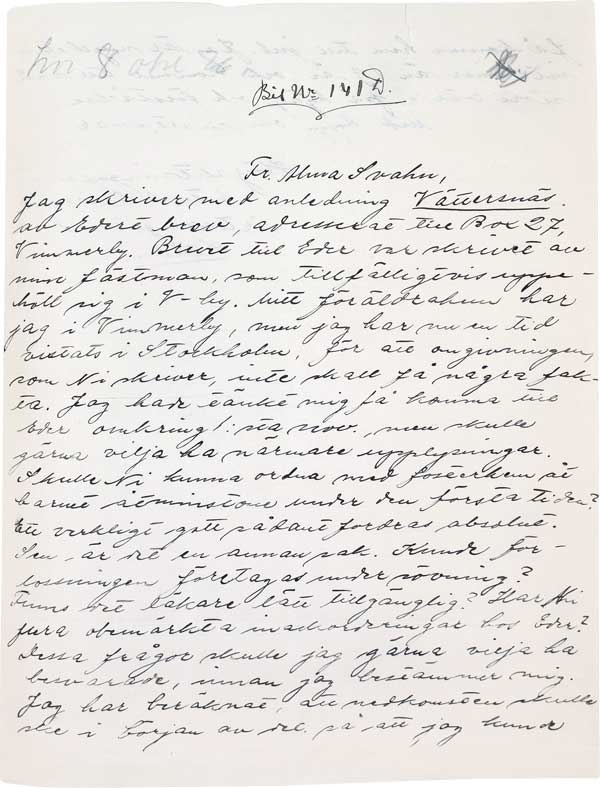 Bil Nr 141 D.
Fr. Alma Svahn,
Jag skriver med anledning Vättersnäs.
av Edert brev, adresserat till Box 27,
Vimmerby. Brevet till Eder var skrivet av
min fästman, som tillfälligtvis uppe-
höll sig i V-by. Mitt föräldrahem har
jag i Vimmerby, men jag har nu en tid
vistats i Stockholm, för att omgivningen,
som Ni skriver, inte skall få några fak-
ta. Jag hade tänkt mig få komma till
Eder omkring 1:sta nov., men skulle
gärna vilja ha närmare upplysningar.
Skulle Ni kunna ordna med fosterhem åt
barnet åtminstone under den första tiden?
Ett verkligt gott sådant fordras absolut.
Sen är det en annan sak. Kunde för-
lossningen företagas under sövning?
Finns det läkare lätt tillgänglig? Har Ni
fura obemärkta inackorderingar hos Eder?
Dessa frågor skulle jag gärna vilja ha
besvarade, innan jag bestämmer mig.
Jag har beräknat, att nedkomsten skulle
ske i början av dec. så att jag kunde